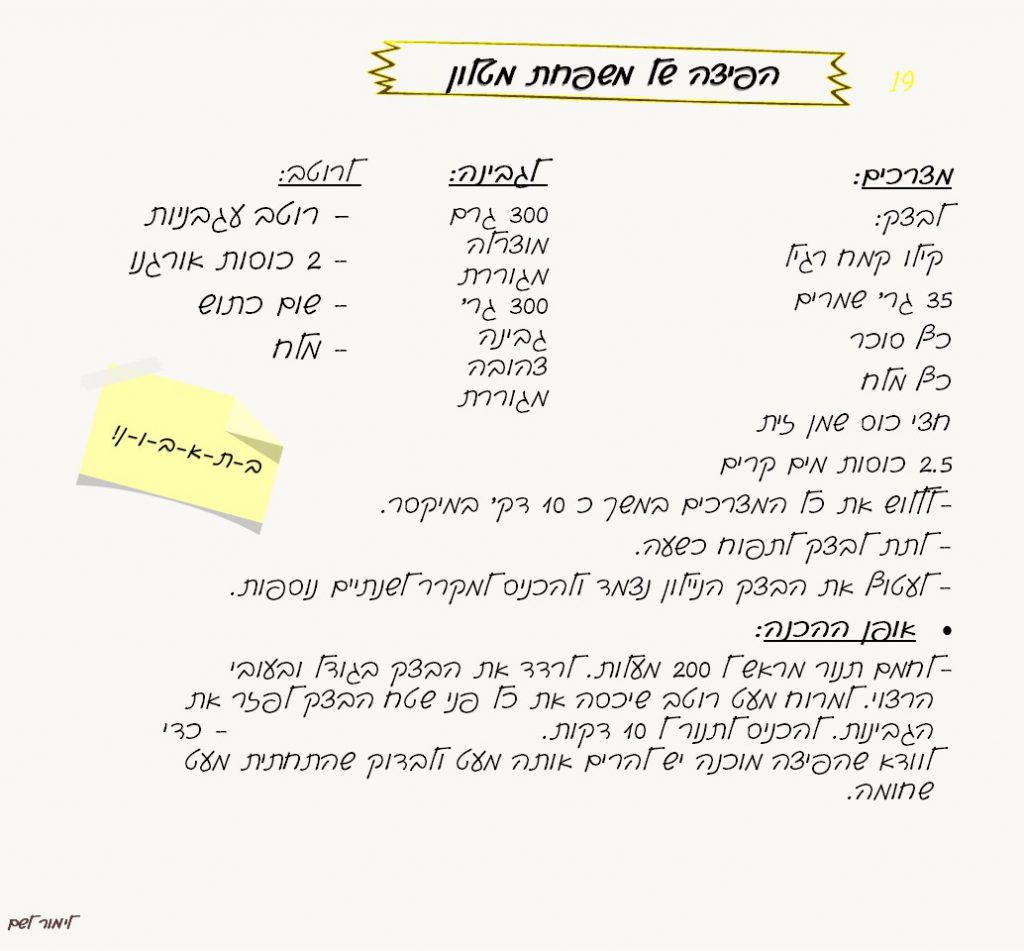 הפיצה של משפחת מטלון
19
מצרכים:
לבצק:
קילו קמח רגיל
35 גר' שמרים
כף סוכר
כף מלח
חצי כוס שמן זית
2.5 כוסות מים קרים
לגבינה:
300 גרם
מוצרלה
מגוררת
300 גר'
גבינה
צהובה
מגוררת
לרוטב:
- רוטב עגבניות
- 2 כוסות אורגנו
- שום כתוש
- מלח
ב-ת-א-ב-ו-ן!
-ללוש את כל המצרכים במשך כ 10 דק' במיקסר.
- לתת לבצק לתפוח כשעה.
- לעטוף את הבצק הניילון נצמד ולהכניס למקרר לשנתיים נוספות.
• אופן ההכנה:
-לחמם תנור מראש ל 200 מעלות. לרדד את הבצק בגודל ובעובי
הרצוי. למרוח מעט רוטב שיכסה את כל פני שטח הבצק לפזר את
הגבינות. להכניס לתנור ל 10 דקות. - כדי
לוודא שהפיצה מוכנה יש להרים אותה מעט ולבדוק שהתחתית מעט
שחומה.
לימור לשם